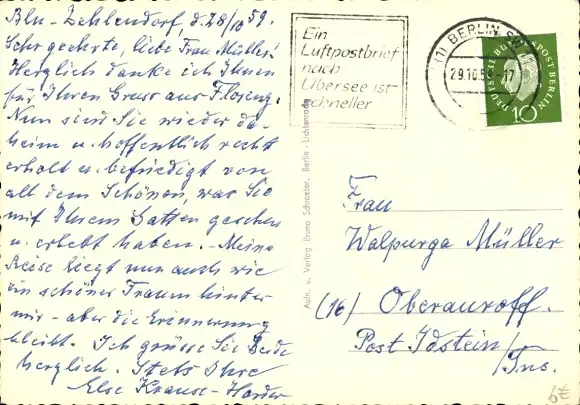 Bln-Zehlendorf, d. 28/10 59.
Sehr geehrte, liebe Frau Müller!
Herzlich danke ich Ihnen
für Ihren Gruss aus Florenz.
Nun sind Sie wieder da-
heim u. hoffentlich recht
erholt u. befriedigt von
all dem Schönen, was Sie
mit Ihrem Gatten gesehen
u. erlebt haben. - Meine
Reise liegt nun auch wie
ein schöner Traum hinter
mir - aber die Erinnerung
bleibt. Ich grüsse Sie Beide
herzlich. Stets Ihre
Else Krause-Harder
Ein
Luftpostbrief
nach
Übersee ist
schneller
(1) BERLIN
29.10.59.-17
DEUTSCHE BUNDESPOST BERLIN
10
Aufn. u. Verlag Bruno Schroeter, Berlin - Lichtenrade
Frau
Walpurga Müller
(16) Oberauroff.
Post Idstein/
Tns.